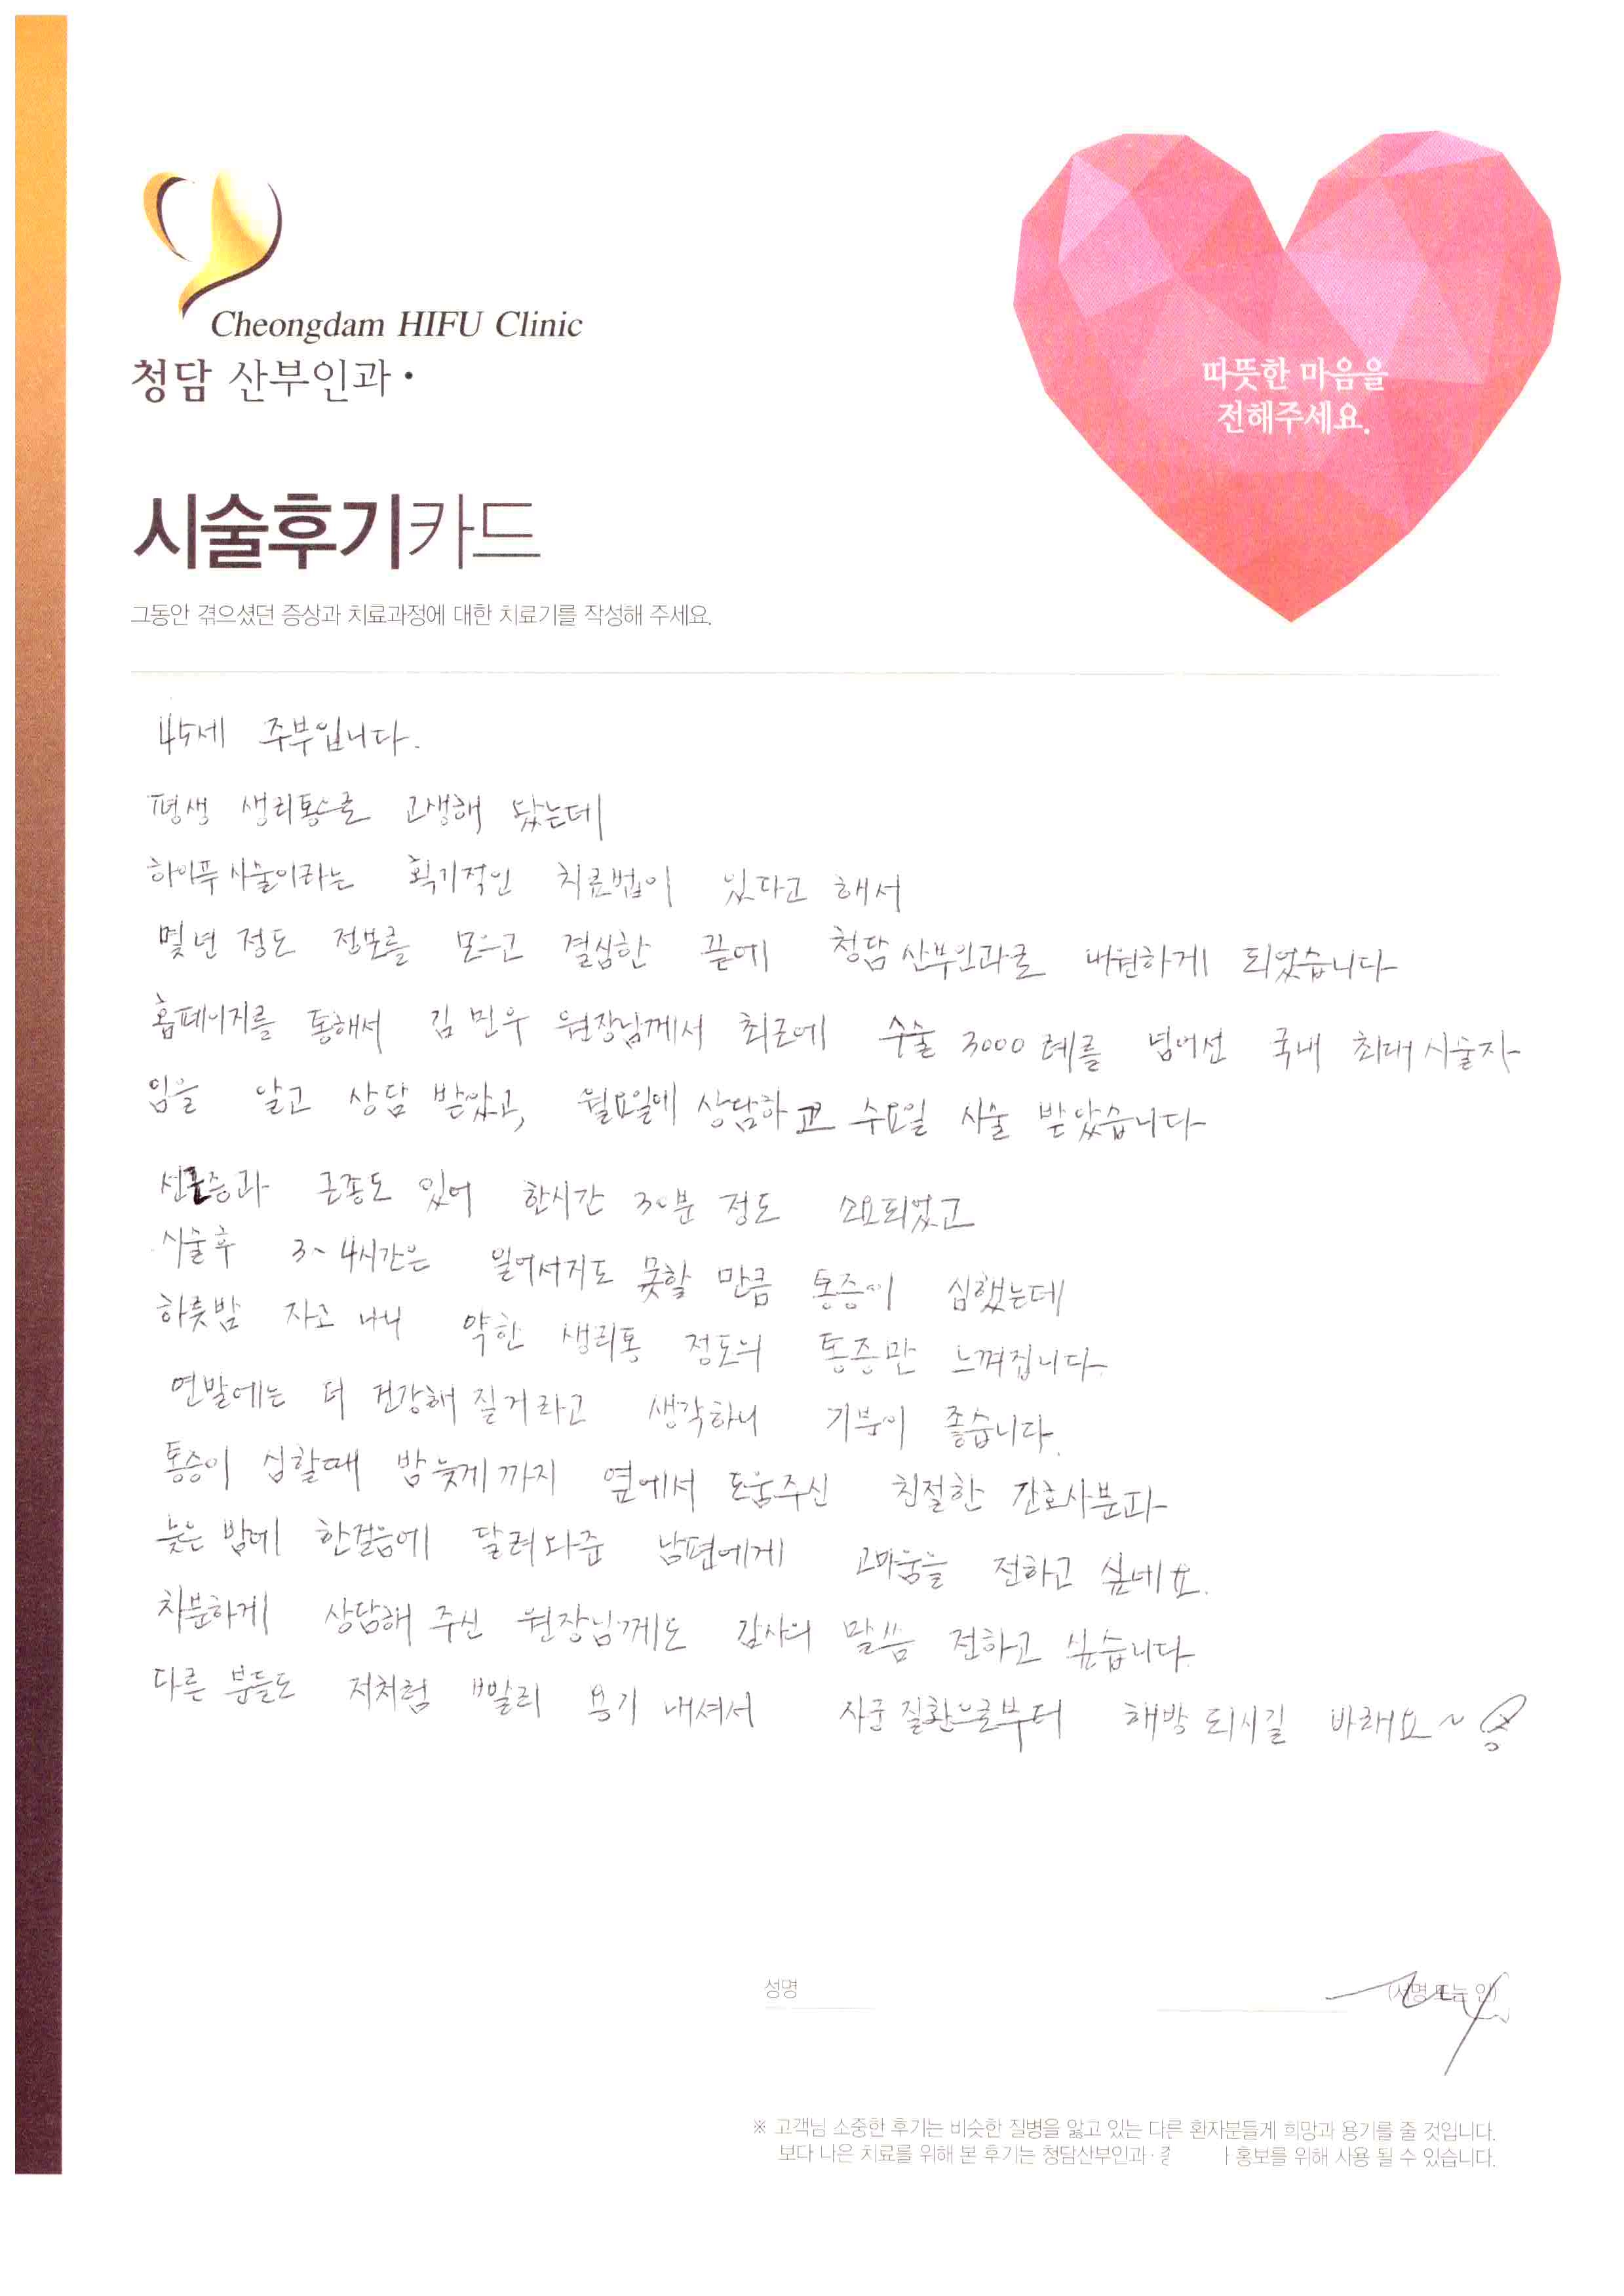 Cheongdam HIFU Clinic
청담 산부인과·
따뜻한 마음을
전해주세요.
시술후기카드
그동안 겪으셨던 증상과 치료과정에 대한 치료기를 작성해 주세요.
45세 주부입니다.
평생 생리통으로 고생해 왔는데
하이푸 시술이라는 획기적인 치료법이 있다고 해서
몇년 정도 정보를 모으고 결심한 끝에 청담 산부인과로 내원하게 되었습니다
홈페이지를 통해서 김민우 원장님께서 최근에 수술 3000례를 넘어선 국내 최대 시술자
임을 알고 상담 받았고, 월요일에 상담하고 수요일 시술 받았습니다
선근증과 근종도 있어 한시간 30분 정도 소요되었고
시술후 3~4시간은 일어서지도 못할 만큼 통증이 심했는데
하룻밤 자고 나니 약한 생리통 정도의 통증만 느껴집니다.
연말에는 더 건강해 질거라고 생각하니 기분이 좋습니다.
통증이 심할때 밤늦게 까지 옆에서 도움주신 친절한 간호사분과
늦은 밤에 한걸음에 달려와준 남편에게 고마움을 전하고 싶네요.
차분하게 상담해 주신 원장님께도 감사의 말씀 전하고 싶습니다.
다른 분들도 저처럼 빨리 용기 내셔서 자궁 질환으로부터 해방 되시길 바래요~
성명
(서명 또는 인)
※ 고객님 소중한 후기는 비슷한 질병을 앓고 있는 다른 환자분들게 희망과 용기를 줄 것입니다.
보다 나은 치료를 위해 본 후기는 청담산부인과· 홍보를 위해 사용 될 수 있습니다.